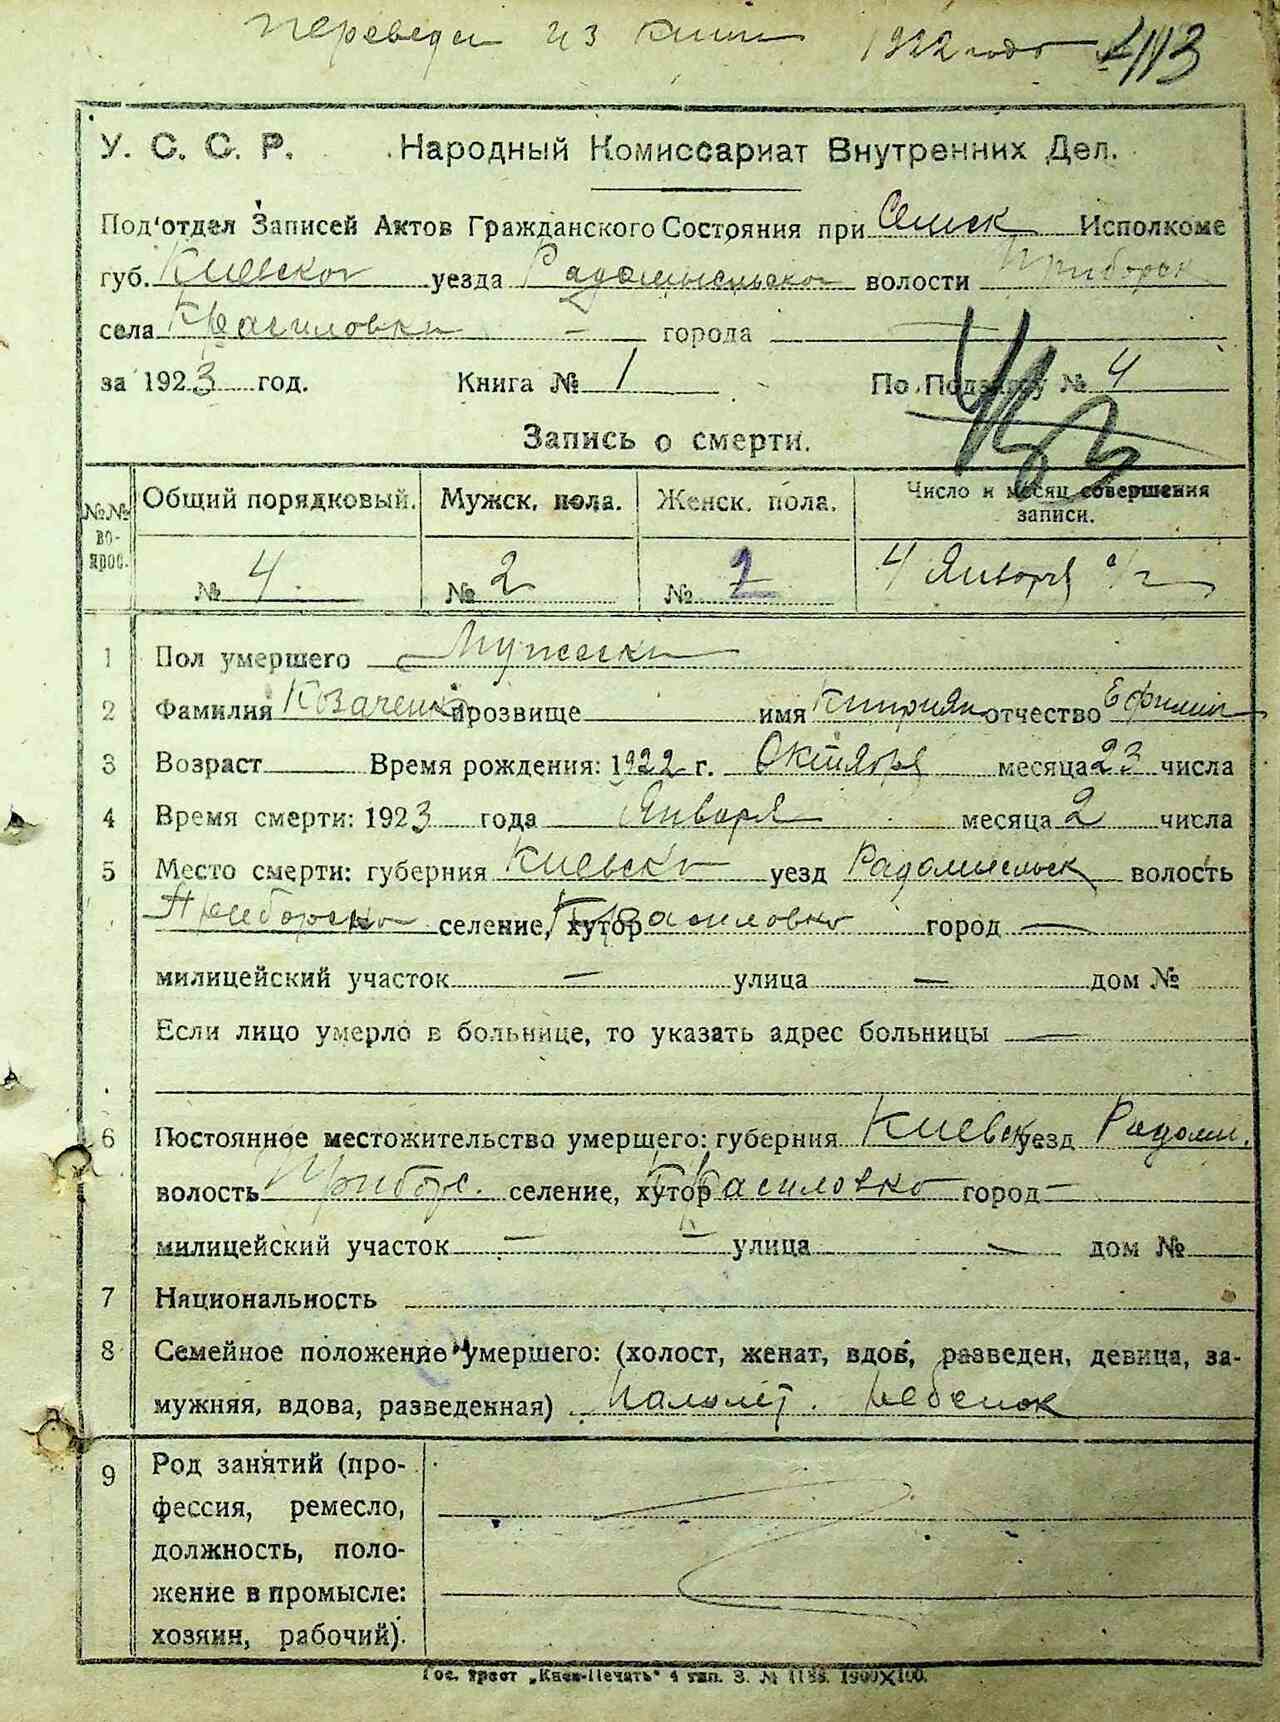 Переведен из книги 1922 года 413
У. С. С. Р. Народный Комиссариат Внутренних Дел.
Под'отдел Записей Актов Гражданского Состояния при Исполкоме
губ. Киевской уезда Радомысльской волости Приборск
села Красиловки — города
за 1923 год. Книга № 1 По Под № 4
Запись о смерти.
№№ во-прос. Общий порядковый. Мужск. пола. Женск. пола. Число и месяц совершения записи.
№ 4 № 2 № 2 4 Января с/г
1 Пол умершего Мужески
2 Фамилия Козаченко прозвище имя Киприян отчество Ефимов
3 Возраст Время рождения: 1922 г. Октября месяца 23 числа
4 Время смерти: 1923 года Января месяца 2 числа
5 Место смерти: губерния Киевско уезд Радомысльск волость
Приборско селение, хутор Красиловко город —
милицейский участок — улица — дом №
Если лицо умерло в больнице, то указать адрес больницы —
6 Постоянное местожительство умершего: губерния Киевск уезд Радом.
волость Приборс. селение, хутор Красиловко город —
милицейский участок — — улица — дом №
7 Национальность
8 Семейное положение умершего: (холост, женат, вдов, разведен, девица, за-
мужняя, вдова, разведенная) Малолет. ребенок
9 Род занятий (про-
фессия, ремесло,
должность, поло-
жение в промысле:
хозяин, рабочий).
Гос. трест „Киев-Печать“ 4 тип. З. № 1188. 1900X100.